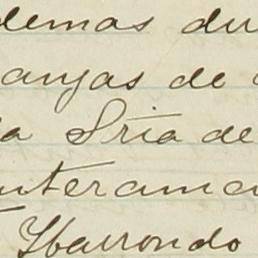 demas du
anjas de
la Sría de
nteram
Ibarrondo